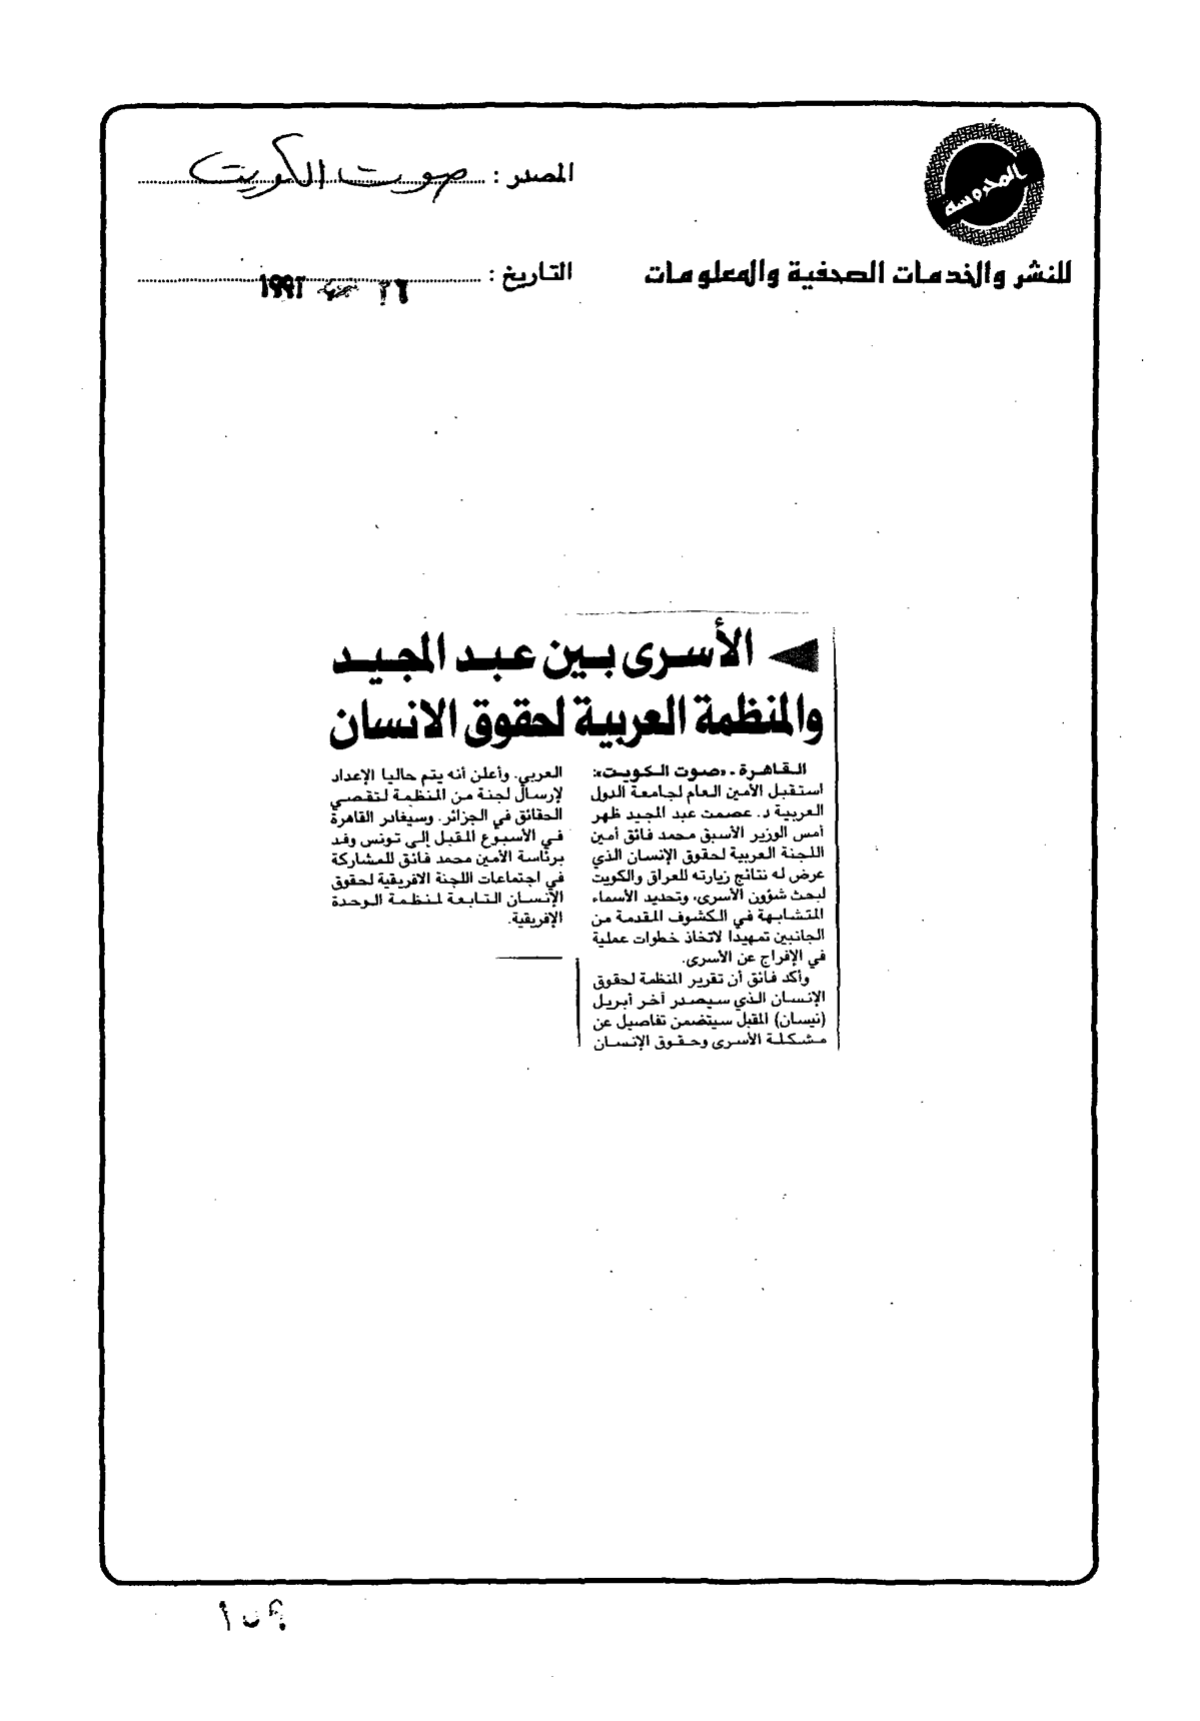 المحروسة
للنشر والخدمات الصحفية والمعلومات
المصدر : صوت الكويت
التاريخ : ٢٦ ١٩٩٢
الأسرى بين عبد المجيد
والمنظمة العربية لحقوق الانسان
القاهرة ـ «صوت الكويت»:
استقبل الأمين العام لجامعة الدول
العربية د. عصمت عبد المجيد ظهر
أمس الوزير الأسبق محمد فائق أمين
اللجنة العربية لحقوق الإنسان الذي
عرض له نتائج زيارته للعراق والكويت
لبحث شؤون الأسرى، وتحديد الأسماء
المتشابهة في الكشوف المقدمة من
الجانبين تمهيدا لاتخاذ خطوات عملية
في الإفراج عن الأسرى.
وأكد فائق أن تقرير المنظمة لحقوق
الإنسان الذي سيصدر آخر أبريل
(نيسان) المقبل سيتضمن تفاصيل عن
مشكلة الأسرى وحقوق الإنسان
العربي. وأعلن أنه يتم حاليا الإعداد
لإرسال لجنة من المنظمة لتقصي
الحقائق في الجزائر. وسيغادر القاهرة
في الأسبوع المقبل إلى تونس وفد
برئاسة الأمين محمد فائق للمشاركة
في اجتماعات اللجنة الافريقية لحقوق
الإنسان التابعة لمنظمة الوحدة
الإفريقية.
١٥٩